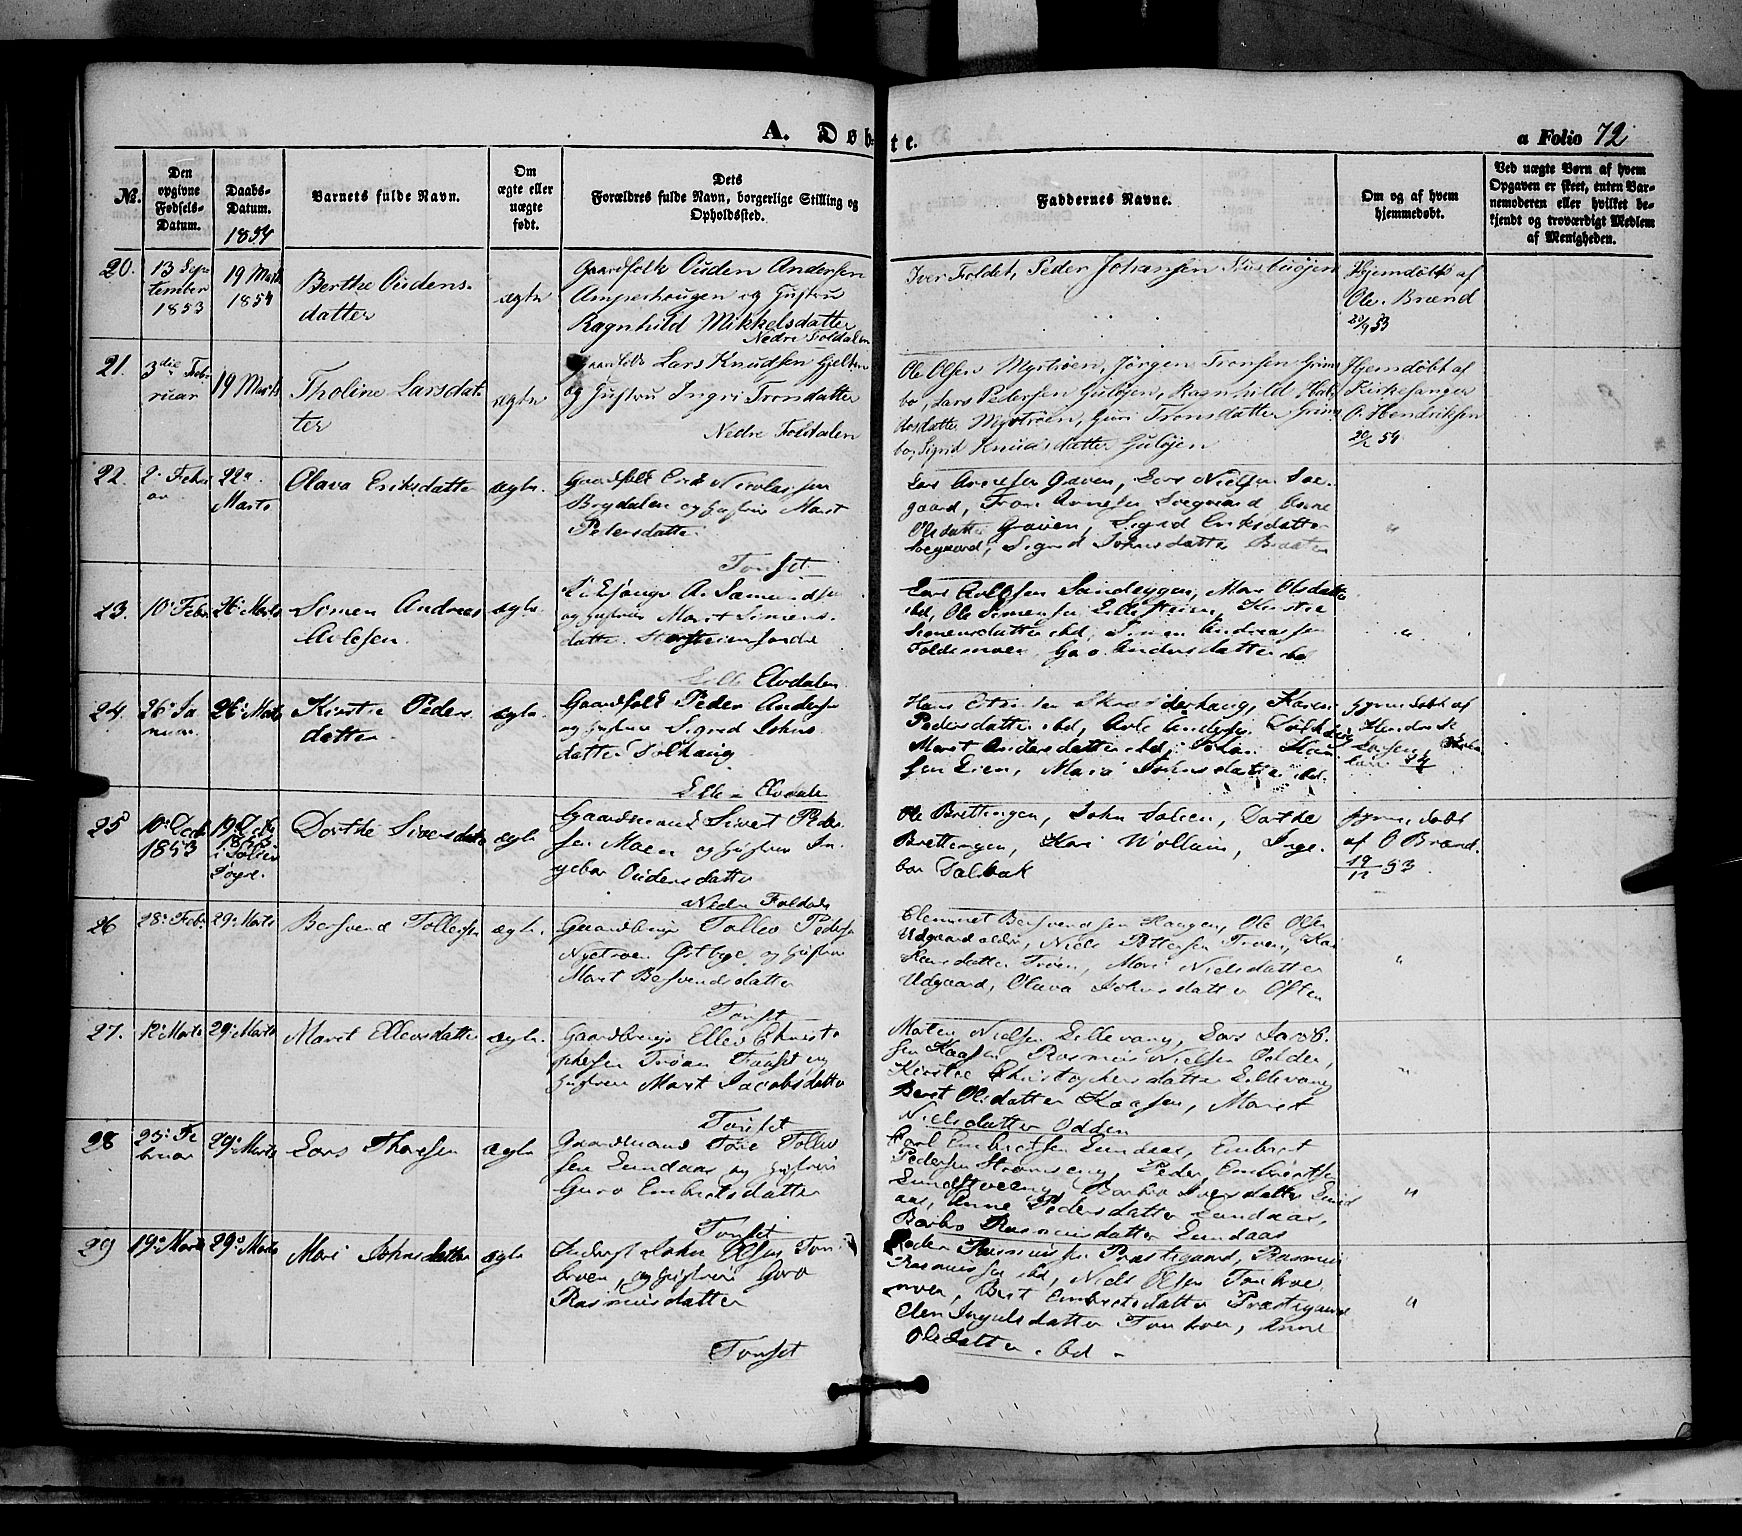 A. Døbte.
a Folio 72
No.
Den opgivne Fødsels-Datum.
Daabs-Datum. 1854
Barnets fulde Navn.
Om ægte eller uægte født.
Dets Forældres fulde Navn, borgerlige Stilling og Opholdssted.
Faddernes Navne.
Om og af hvem hjemmedøbt.
Ved uægte Børn af hvem Opgaven er skeet, enten Barnemoderen eller hvilket bekjendt og troværdigt Medlem af Menigheden.
20.
13 September 1853
19 Marts 1854
Berthe Oudens-
datter
ægte
Gaardfolk Ouden Andersen
Amperhaugen og Hustru
Ragnhild Mikkelsdatter
Nedre Foldalen
Iver Foldet, Peder Johansen
Hjemdøbt af
Ole Brænd
20/9 53
21.
3die Februar
19 Marts
Tholine Larsdat-
ter
ægte
Lars Knudsen Gjelten
og Hustru Ingri Tronsdatter
Nedre Foldalen
Ole Olsen Myrtrøen, Jørgen Tronsen Grim-
bo, Lars Pedersen Guløjen, Ragnhild
Myrtrøen, Guri Tronsdatter Grim-
bo, Sigrid Knudsdatter Guløjen
Hjemdøbt af
Kirkesanger
O. Hendriksen
54
22.
2. Febru
ar
22n
Marts
Olava Eriksdatter
ægte.
Gaardfolk Erik Nicolaysen
Brydalen og Hustru Marit
Petersdatter
Tonset
Lars Arnesen Gaven, Lars Nielsen Soe-
gaard, Tron Arnesen Soegaard,
Olsdatter Graven, Sigrid Eriksdatter
Soegaard, Sigrid Johnsdatter Braaten
"
23.
10. Febr
26. Marts
Simen Andreas
Avlesen.
ægte.
A. Samundsen
og Hustrue Marit Simens-
datter
Lille Elvdalen
Lars Avlesen Sandeggen, Mari Olsdatter
ibd, Ole Simensen Lillesteien, Kirstie
Simensdatter ibd, Simen Andreassen
Foldemoen, Andersdatter ibd
"
24.
26. Ja
nuar.
26. Marts
Kirstie Peders
datter
ægte.
Gaardfolk Peder Andersen
og Hustrue Sigrid Johns
datter Tolhaug
Lille-Elvdalen
Hans Skraaderhaug, Karen
Pedersdatter ibd,
Marit Andersdatter ibd,
sen Lien, Mari Johnsdatter ibd.
hjemdøbt af
25
10. Decb
1853
19. Decb
1853
Dorthe Siversdatter
ægte
Gaardmand Sivert Peder-
sen Moen og Hustrue In-
gebor Oudensdatter
Nedre Foldalen
Ole Brettingen, John Dalen, Dorthe
Brettingen, Kari Wollum, Inge-
bor Dalbak
hjemdøbt
af O Brænd.
19/12 53
26
28. Feb.
29. Marts
Bersvend Tollefsen
ægte.
Gaardbruger Tollev Pedersen
Nyetrøen Østbye og Hustrue
Marit Bersvendsdatter
Tonset
Clemmet Bersvendsen Haugen, Ole Olsen
Udgaard, Niels Pettersen Trøen,
Hansdatter Trøen, Mari Nielsdatter
Udgaard, Olava Johnsdatter Østen
"
27.
12. Marts
29. Marts
Marit Ellevsdatter
ægte.
Gaardbruger Ellev Christo
phersen Trøan Fauset og
Hustrue Marit Jacobsdatter
Tonset
Morten Nielsen Lillevang, Lars Jacob-
sen Kaasen, Rasmus Nielsen Odden,
Kirstie Christophersdatter Lillevang
Berit Olsdatter Kaasen, Marit
Nielsdatter Odden
"
28
25. Fe
bruar
29. Marts
Lars Thoresen
ægte
Gaardmand Tore Tollev
sen Eundaas og Hustrue
Guro Embretsdatter
Tonset
Carl Embretsen Eundaas, Embret
Pedersen Strømseng, Peder Embretsen
Barbro Iversdatter Eund
aas, Anne Pedersdatter Eundaas,
Barbro Rasmusdatter Eundaas
"
29
19. Marts
29. Marts
Mari Johnsdatter
ægte
Inderst John Olsen Ton-
broen, og Hustrue Guro
Rasmusdatter
Tonset
Peder Rasmussen Præstegaard, Rasmus
Rasmussen ibd, Niels Olsen Tonbroe
moen, Berit Embretsdatter Præstegaard
Elen Ingulsdatter Tonbroen, Anne
Olsdatter ibd -
"